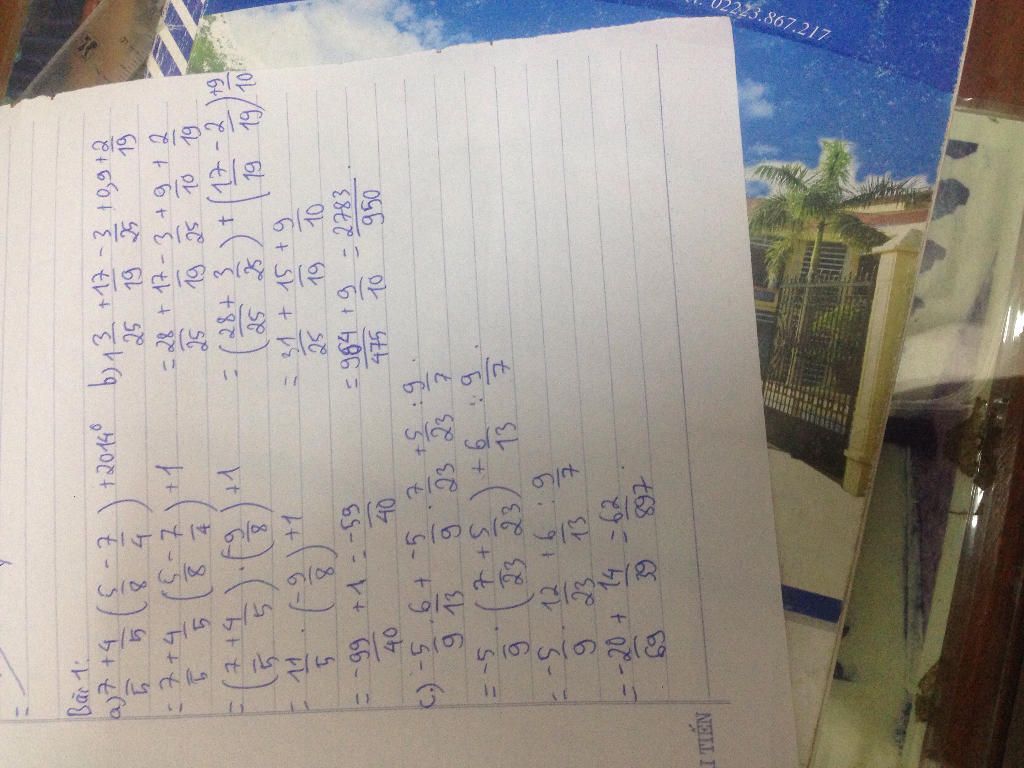 Bài 1:
a) 7/5 + 4/5 (5/8 - 7/4) + 2014⁰
= 7/5 + 4/5 (5/8 - 7/4) + 1
= (7/5 + 4/5) . (9/8) + 1
= 11/5 . (-9/8) + 1
= -99/40 + 1 = -59/40
b) 1 3/25 + 17/19 - 3/25 + 0,9 + 2/19
= 28/25 + 17/19 - 3/25 + 9/10 + 2/19
= (28/25 + 3/25) + (17/19 - 2/19) + 9/10
= 31/25 + 15/19 + 9/10
= 964/475 + 9/10 = 2783/950.
c.) -5/9 . 6/13 + -5/9 . 7/23 + 5/23 : 9/7.
= -5/9 . (7/23 + 5/23) + 6/13 : 9/7.
= -5/9 . 12/23 + 6/13 : 9/7
= -20/69 + 14/39 = 62/897.
TIẾN
02223.867.217